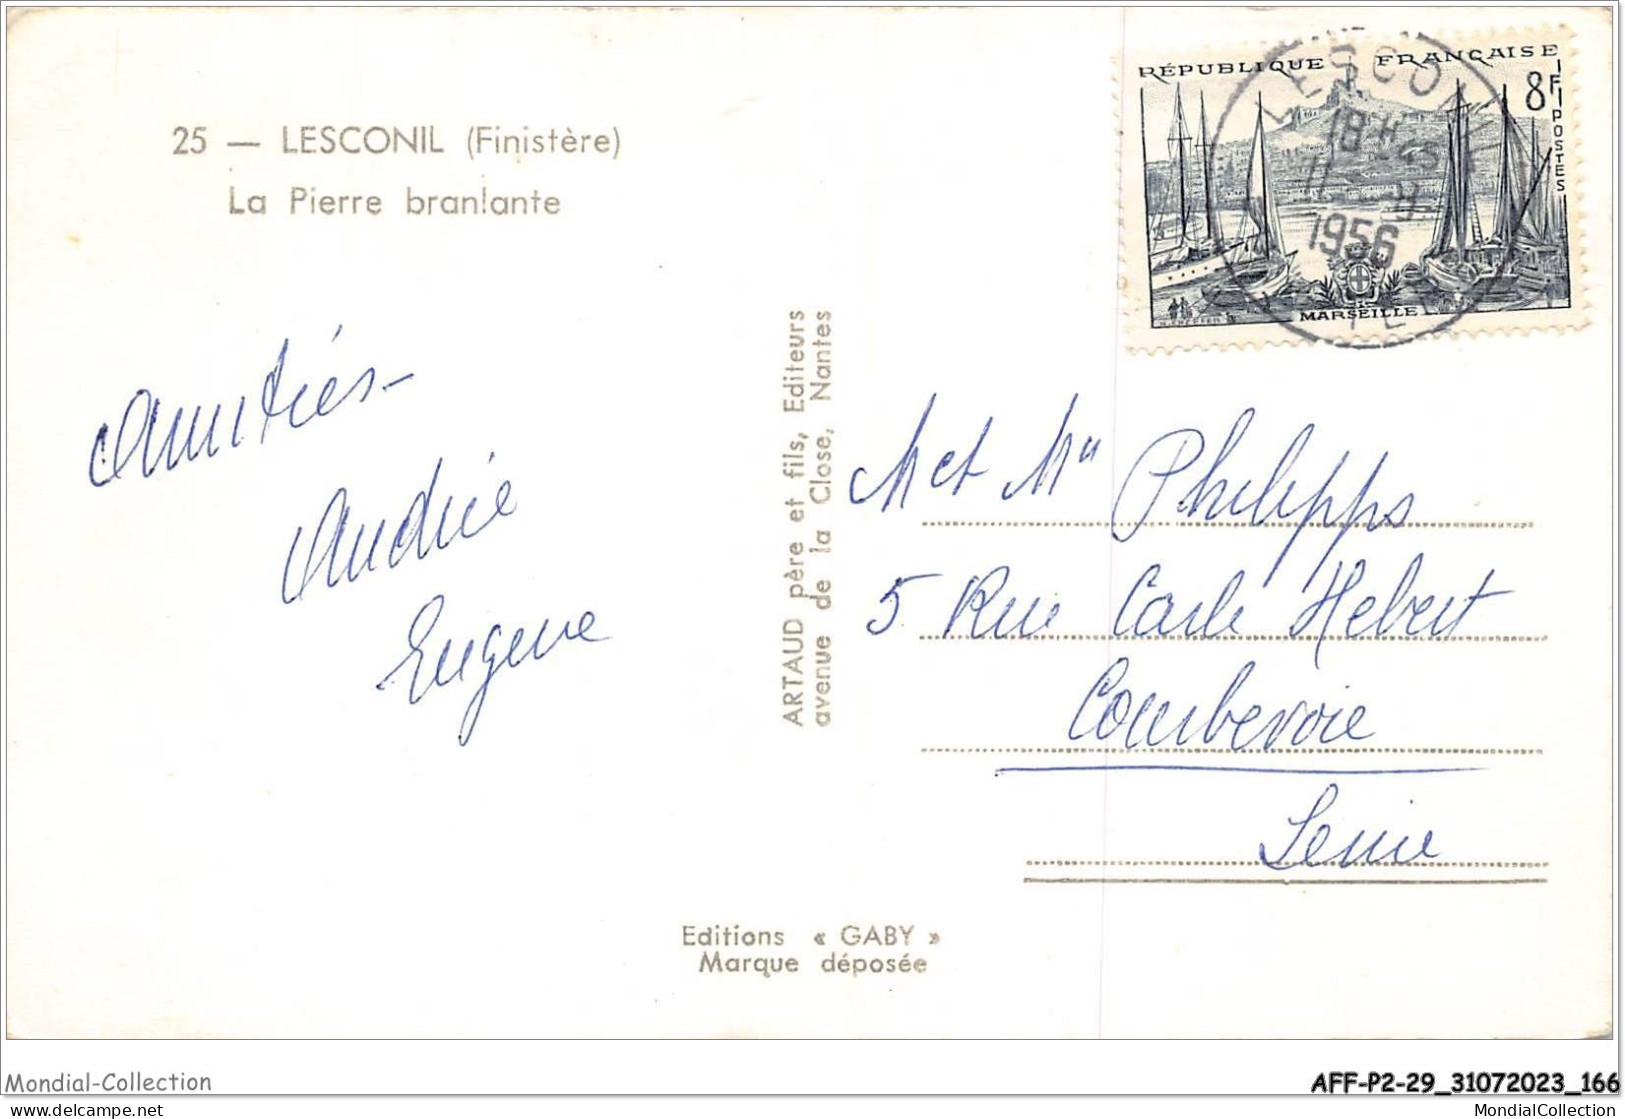 25 — LESCONIL (Finistère)
La Pierre branlante
RÉPUBLIQUE FRANÇAISE
8F
POSTES
MARSEILLE
LESCONIL
18H45
1956
Amitiés-
Andrée
Eugene
ARTAUD père et fils, Editeurs
avenue de la Close, Nantes
M et Me Philipps
5 Rue Carle Hebert
Courbevoie
Seine
Editions « GABY »
Marque déposée
Mondial-Collection
AFF-P2-29_31072023_166
delcampe.net
MondialCollection